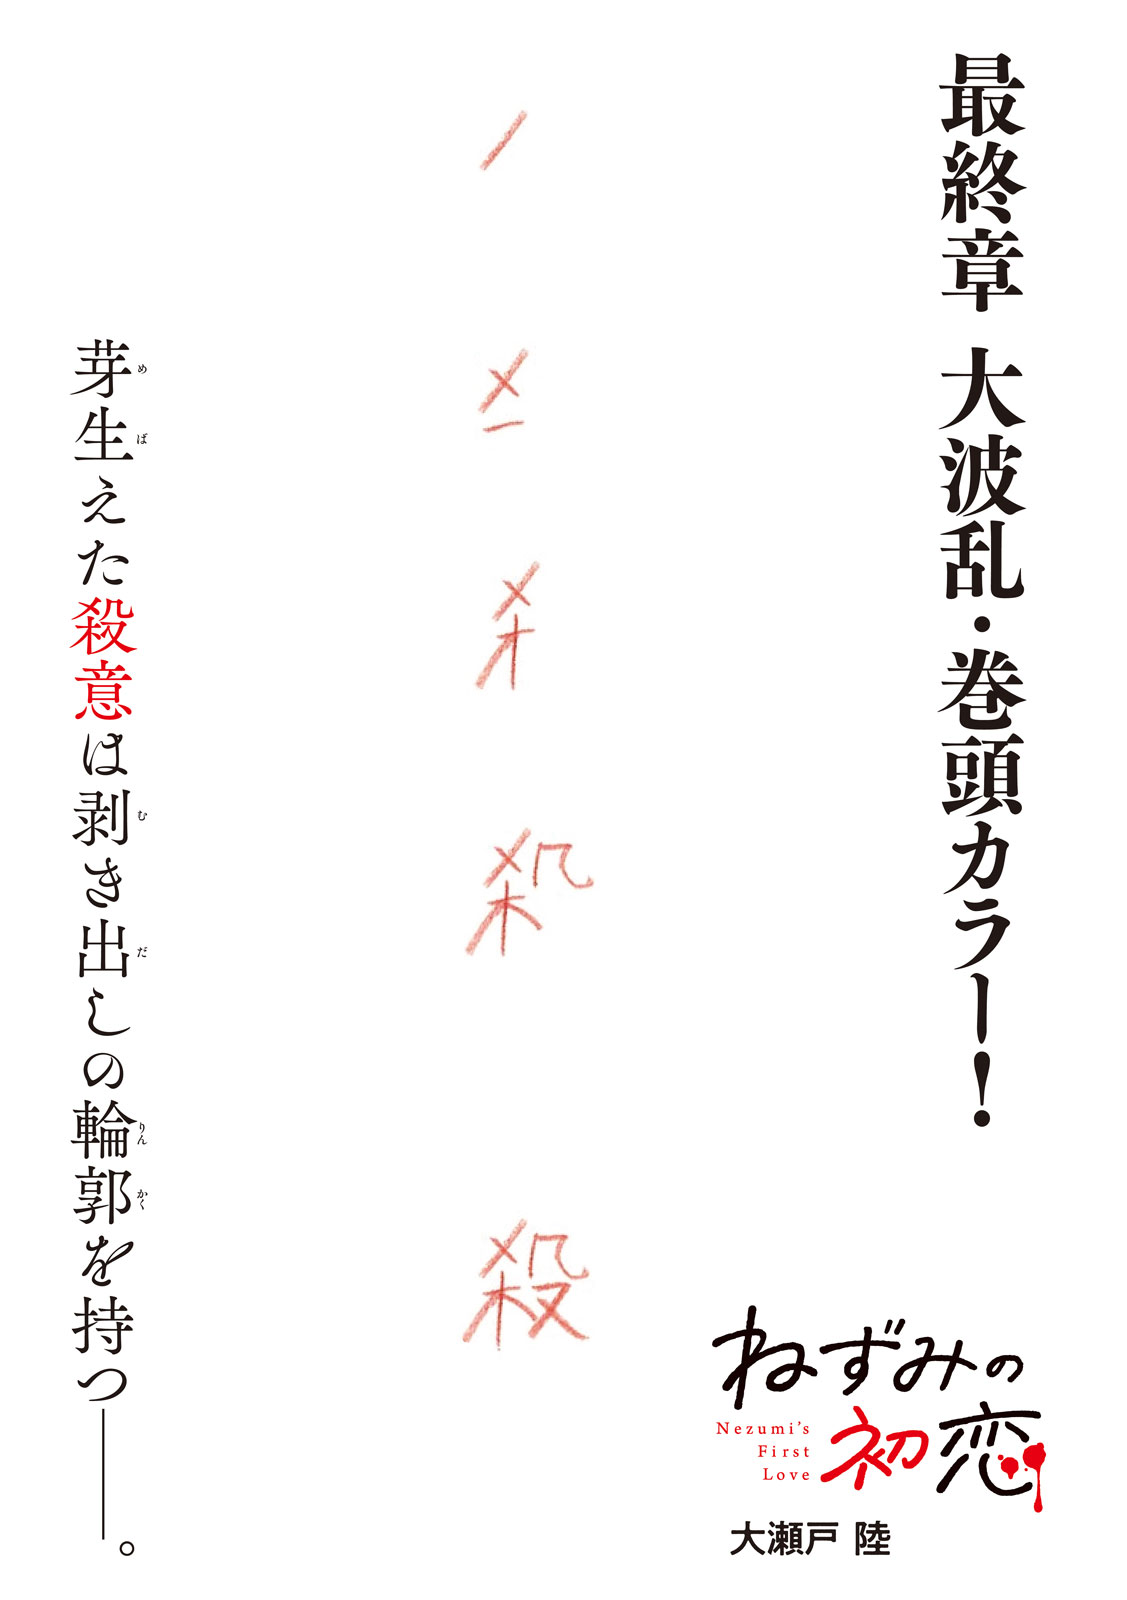 最終章 大波乱・巻頭カラー！
殺
芽生えた殺意は剥き出しの輪郭を持つ――。
めばむだりんかく
ねずみの
初恋
Nezumi's
First
Love
大瀬戸 陸